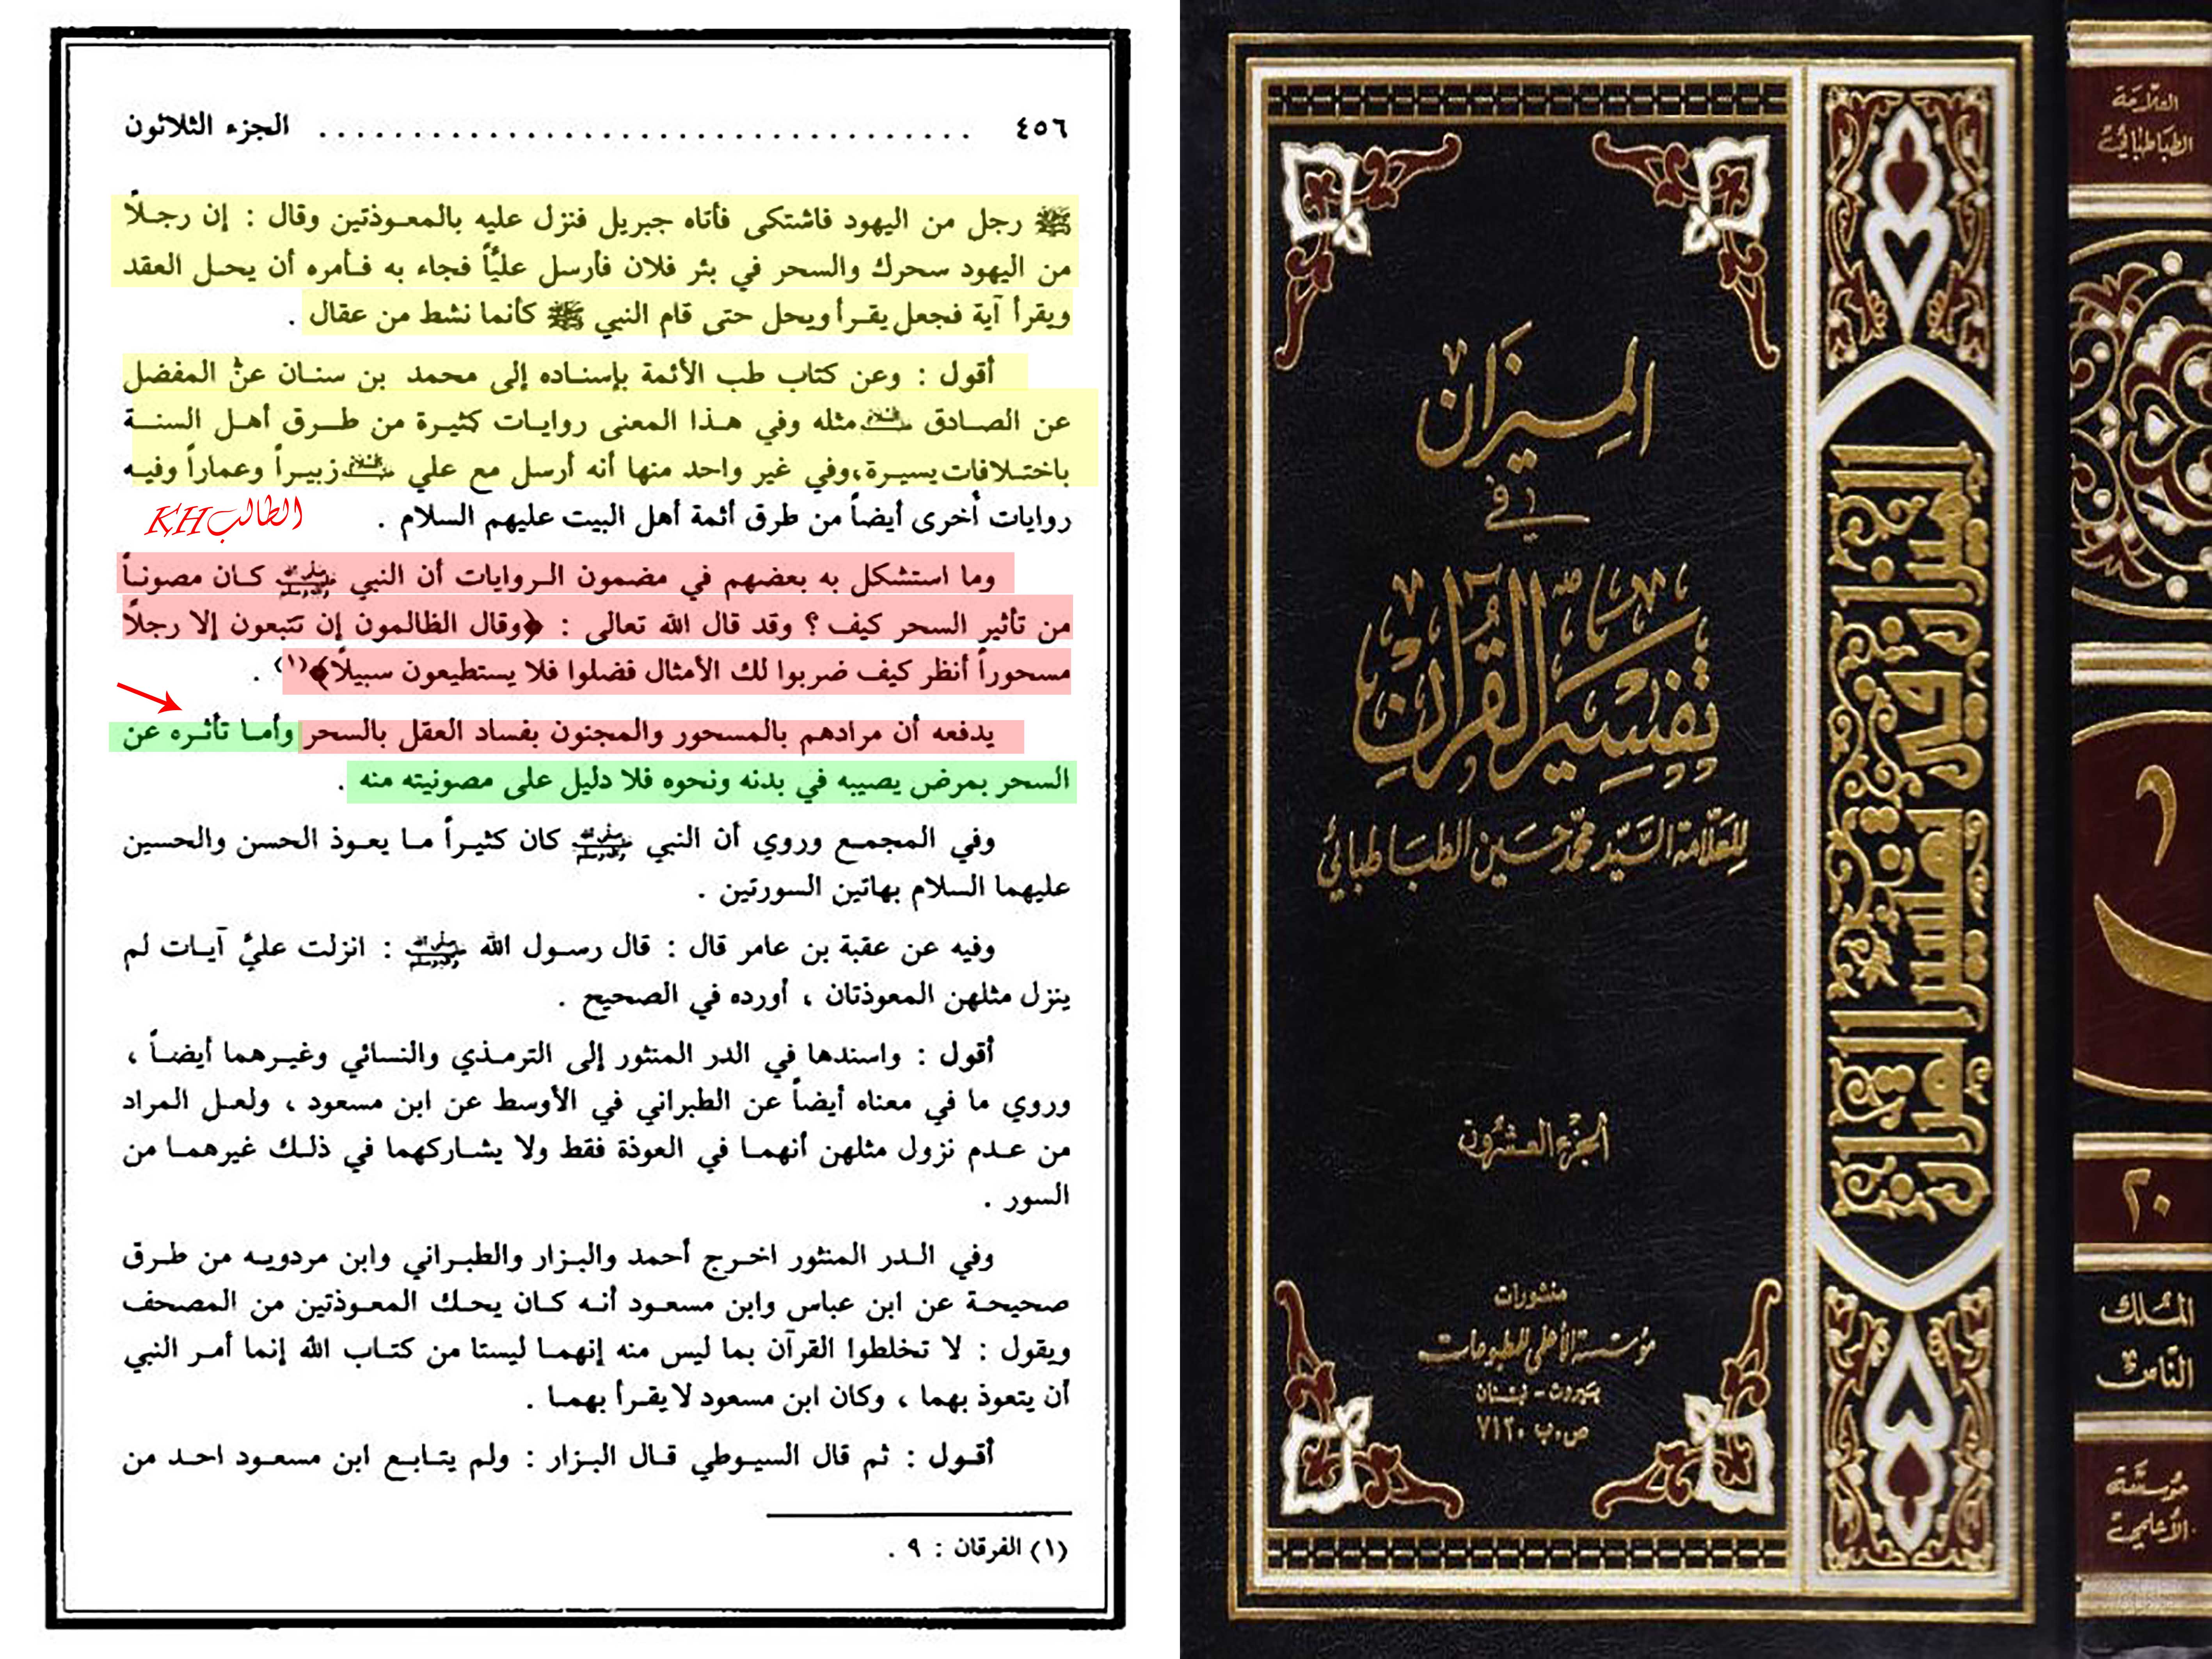 ٤٥٦ ..................................... الجزء الثلاثون
ﷺ رجل من اليهود فاشتكى فأتاه جبريل فنزل عليه بالمعـوذتين وقال : إن رجـلاً
من اليهود سحرك والسحر في بئر فلان فأرسل عليّاً فجاء به فـأمره أن يحـل العقد
ويقرأ آية فجعل يقـرأ ويحل حتى قام النبي ﷺ كأنما نشط من عقال .
أقول : وعن كتاب طب الأئمة بإسنـاده إلى محمد بن سنـان عن المفضل
عن الصـادق عليه السلام مثله وفي هـذا المعنى روايـات كثيـرة من طـرق أهـل السنـة
باختـلافات يسيـرة، وفي غير واحد منها أنه أرسل مع علي عليه السلام زبيـراً وعماراً وفيـه
روايات أخرى أيضاً من طرق أئمة أهل البيت عليهم السلام .
الطالب KH
وما استشكل به بعضهم في مضمون الـروايات أن النبي ﷺ كـان مصونـاً
من تأثير السحر كيف ؟ وقد قال الله تعالى : ﴿وقال الظالمون إن تتبعون إلا رجلاً
مسحوراً أنظر كيف ضربوا لك الأمثال فضلوا فلا يستطيعون سبيلاً﴾(١) .
يدفعه أن مرادهم بالمسحور والمجنون بفساد العقل بالسحر وأمـا تأثـره عن
السحر بمرض يصيبه في بدنه ونحوه فلا دليل على مصونيته منه .
وفي المجمـع وروي أن النبي ﷺ كان كثيـراً مـا يعـوذ الحسن والحسين
عليهما السلام بهاتين السورتين .
وفيه عن عقبة بن عامر قال : قال رسـول الله ﷺ : انزلت عليّ آيـات لم
ينزل مثلهن المعوذتان ، أورده في الصحيح .
أقول : واسندها في الدر المنثور إلى الترمـذي والنسائي وغيـرهما أيضـاً ،
وروي ما في معناه أيضاً عن الطبراني في الأوسط عن ابن مسعود ، ولعـل المراد
من عـدم نزول مثلهن أنهمـا في العوذة فقط ولا يشـاركهما في ذلـك غيرهمـا من
السور .
وفي الـدر المنثور اخـرج أحمد والبـزار والطبـراني وابن مردويـه من طـرق
صحيحـة عن ابن عباس وابن مسعـود أنـه كـان يحـك المعـوذتين من المصحف
ويقول : لا تخلطوا القرآن بما ليس منه إنهمـا ليستا من كتـاب الله إنما أمـر النبي
أن يتعوذ بهما ، وكان ابن مسعود لا يقـرأ بهمـا .
أقـول : ثم قال السيـوطي قـال البـزار : ولم يتـابـع ابن مسعـود احـد من
(١) الفرقان : ٩ .
الميزان
في
تفسير القرآن
للعلامة السيد محمد حسين الطباطبائي
الجزء العشرون
منشورات
مؤسسة الأعلمي للمطبوعات
بيروت - لبنان
ص.ب ٧١٢٠
الميزان في تفسير القرآن
العلامة
الطباطبائي
٢٠
الملك
الناس
مؤسسة
الأعلمي